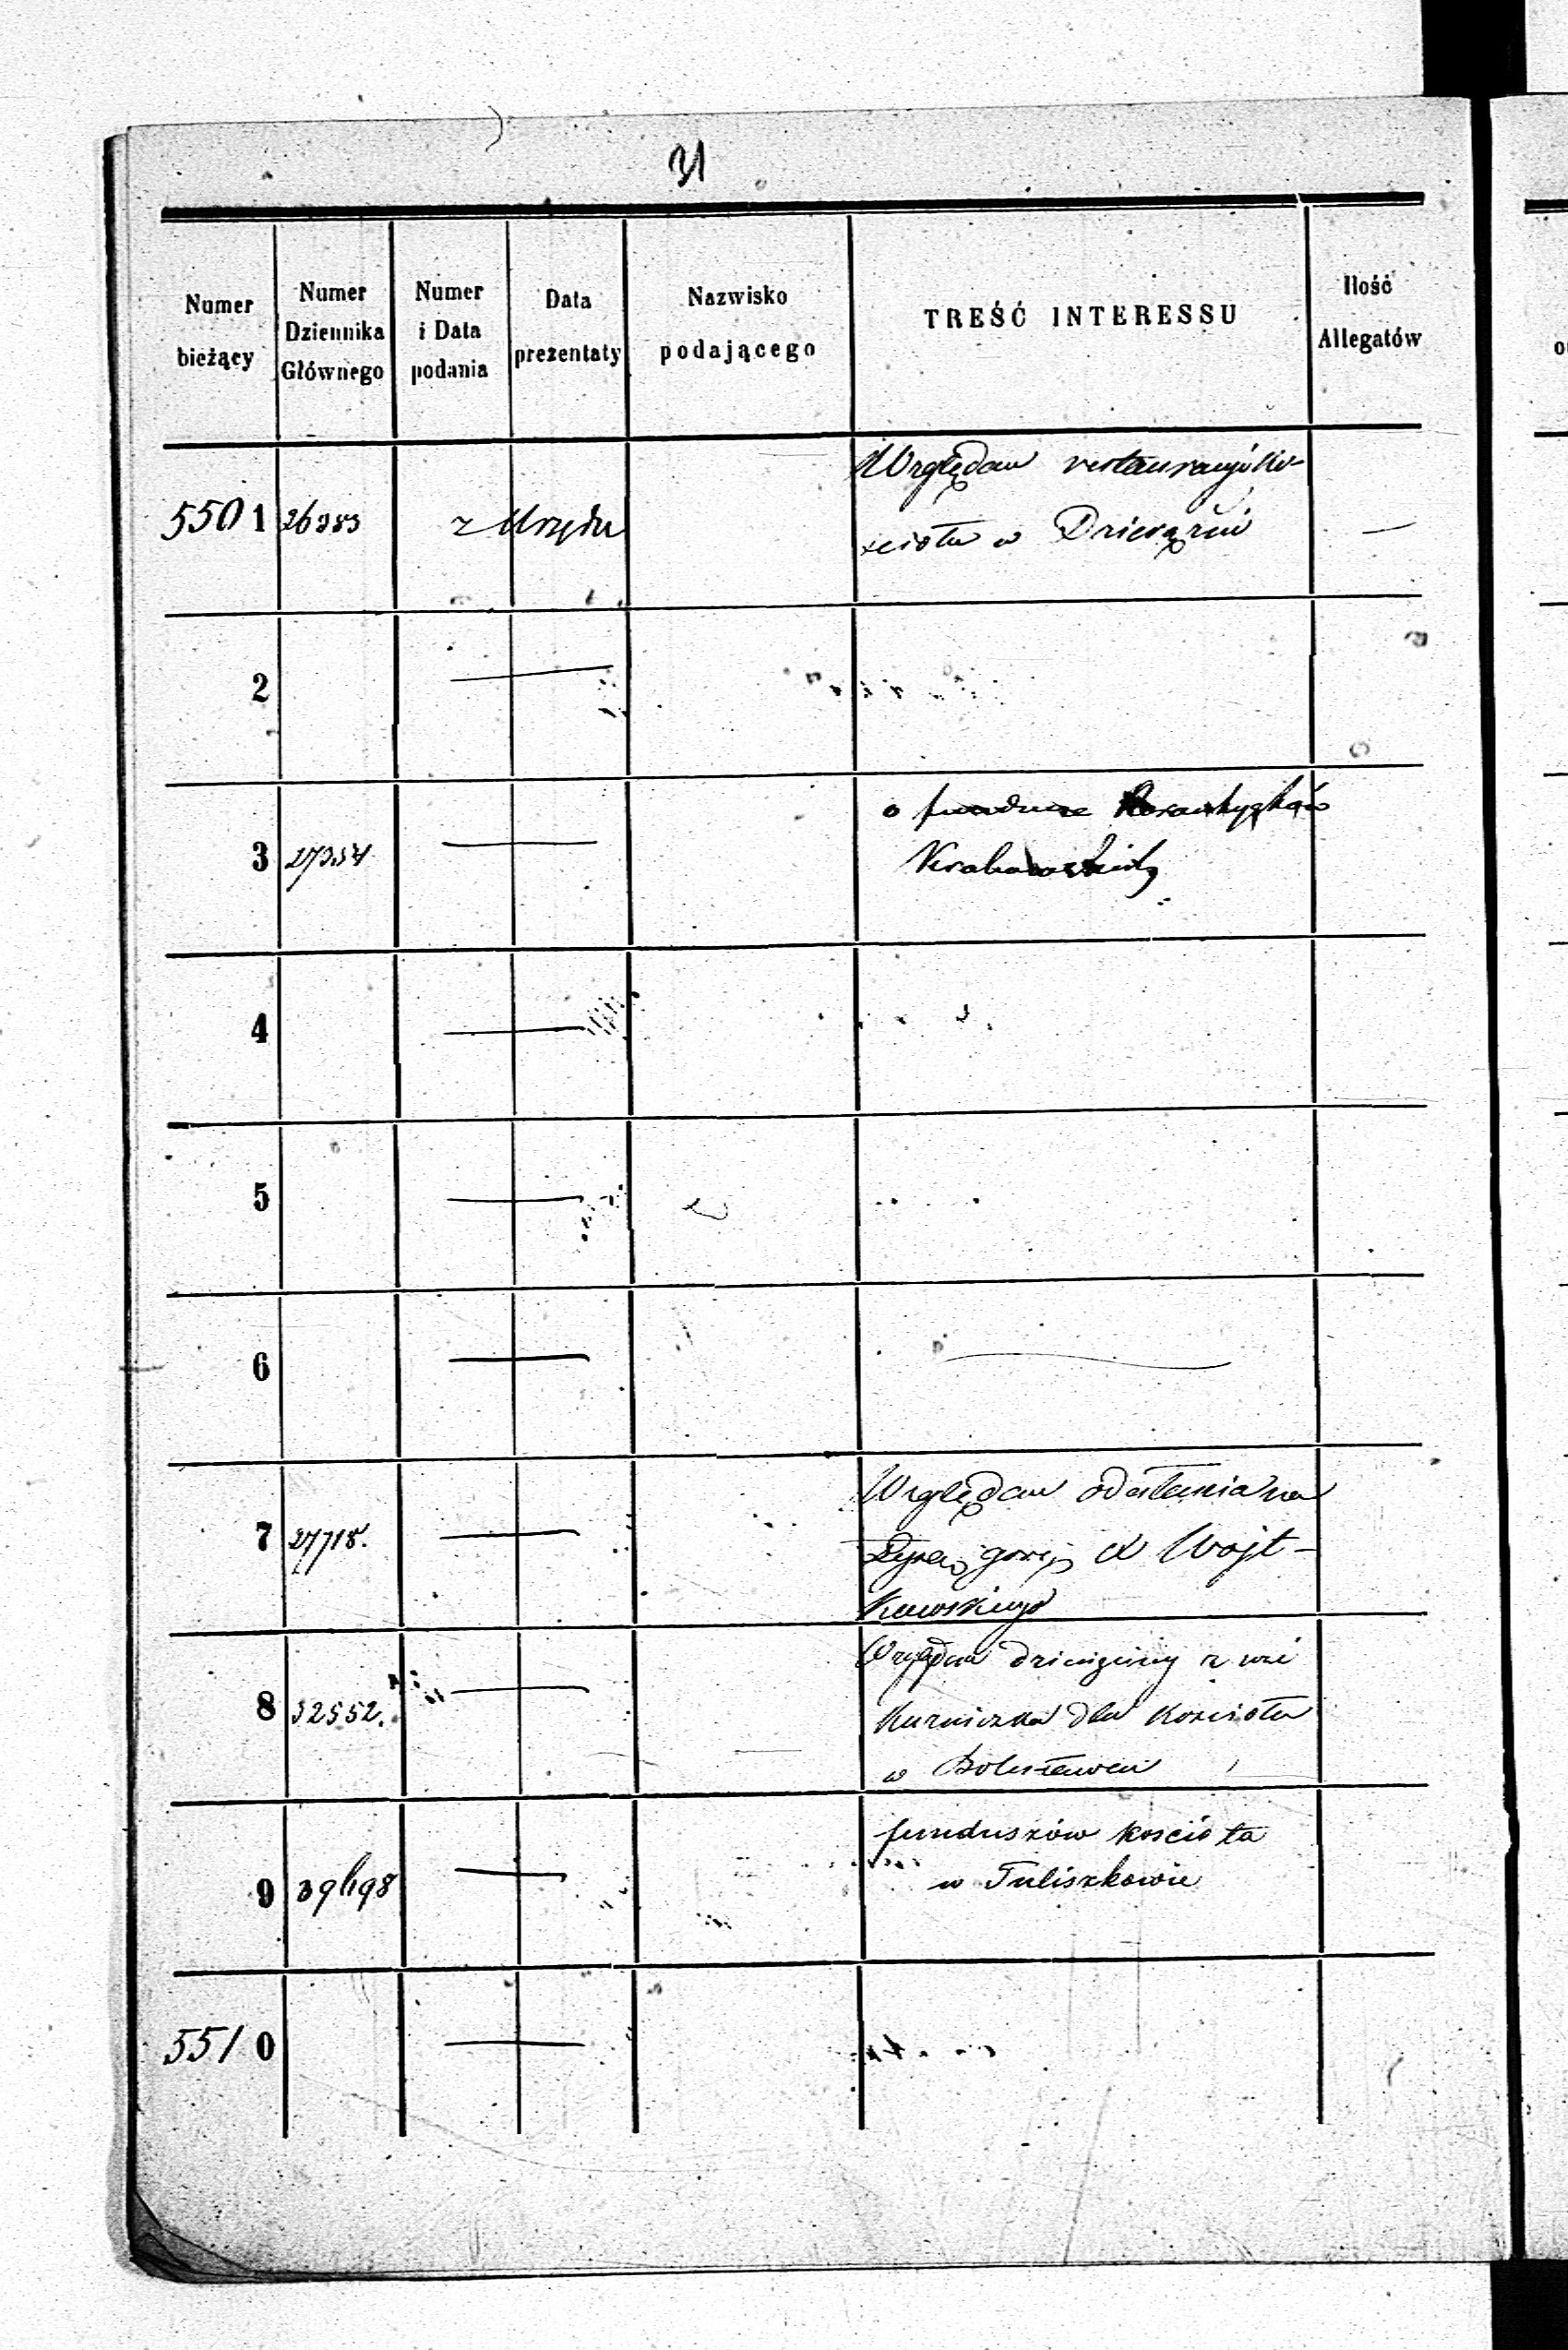 31
Numer bieżący
Numer Dziennika Głównego
Numer i Data podania
Data prezentaty
Nazwisko podającego
TREŚĆ INTERESSU
Ilość Allegatów
5501 26383 z Urzędu Względem restauracyi Ko-
scioła w Dziewążni —
2 —
3 27354 — o fundusze
4 —
5 —
6 —
7 27718. — Względem oddalenia na
Łysą górę X Wojt-
kowskiego
8 32552. — Względem dziesięciny z wsi
dla Kościoła
w Bolesławcu
9 — funduszów kościoła
w Tuliszkowie
5510 —